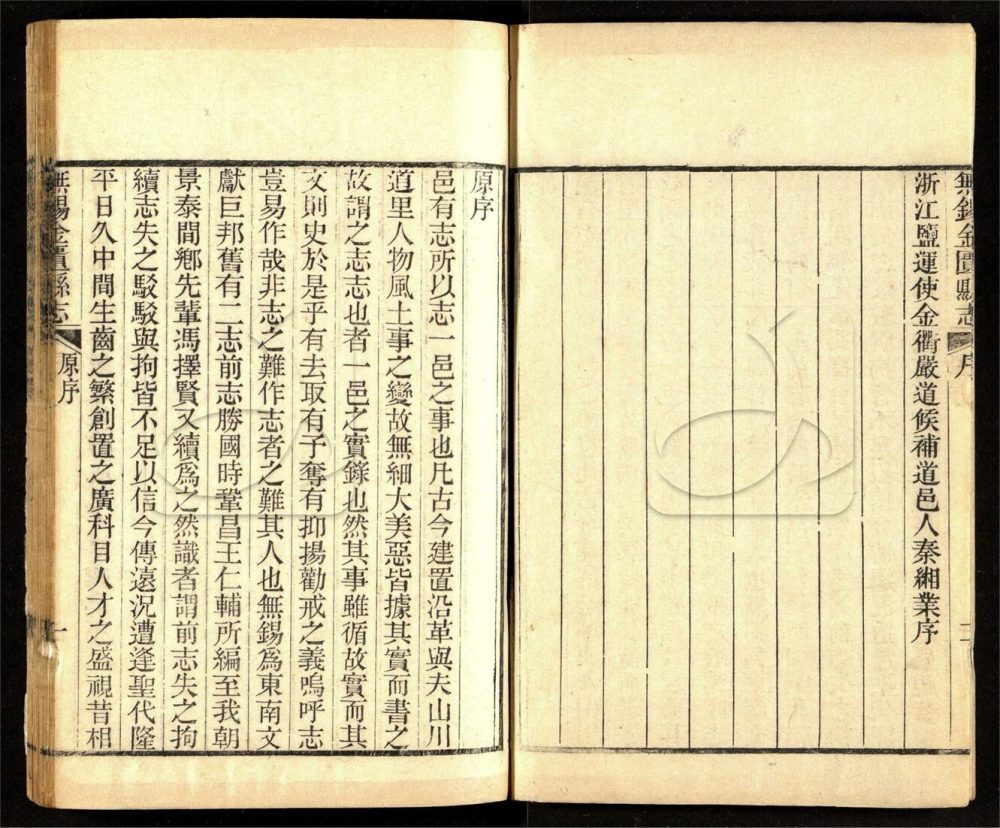 無錫金匱縣志 序
浙江鹽運使金衢嚴道候補道邑人秦緗業序
二
原序
邑有志所以志一邑之事也凡古今建置沿革與夫山川
道里人物風土事之變故無細大美惡皆據其實而書之
故謂之志志也者一邑之實錄也然其事雖循故實而其
文則史於是乎有去取有子奪有抑揚勸戒之義嗚呼志
豈易作哉非志之難作志者之難其人也無錫為東南文
獻巨邦舊有二志前志勝國時鞏昌王仁輔所編至我朝
景泰間鄉先輩馮擇賢又續為之然識者謂前志失之拘
續志失之駁駁與拘皆不足以信今傳遠況遭逢聖代隆
平日久中間生齒之繁創置之廣科目人才之盛視昔相
無錫金匱縣志 原序
一